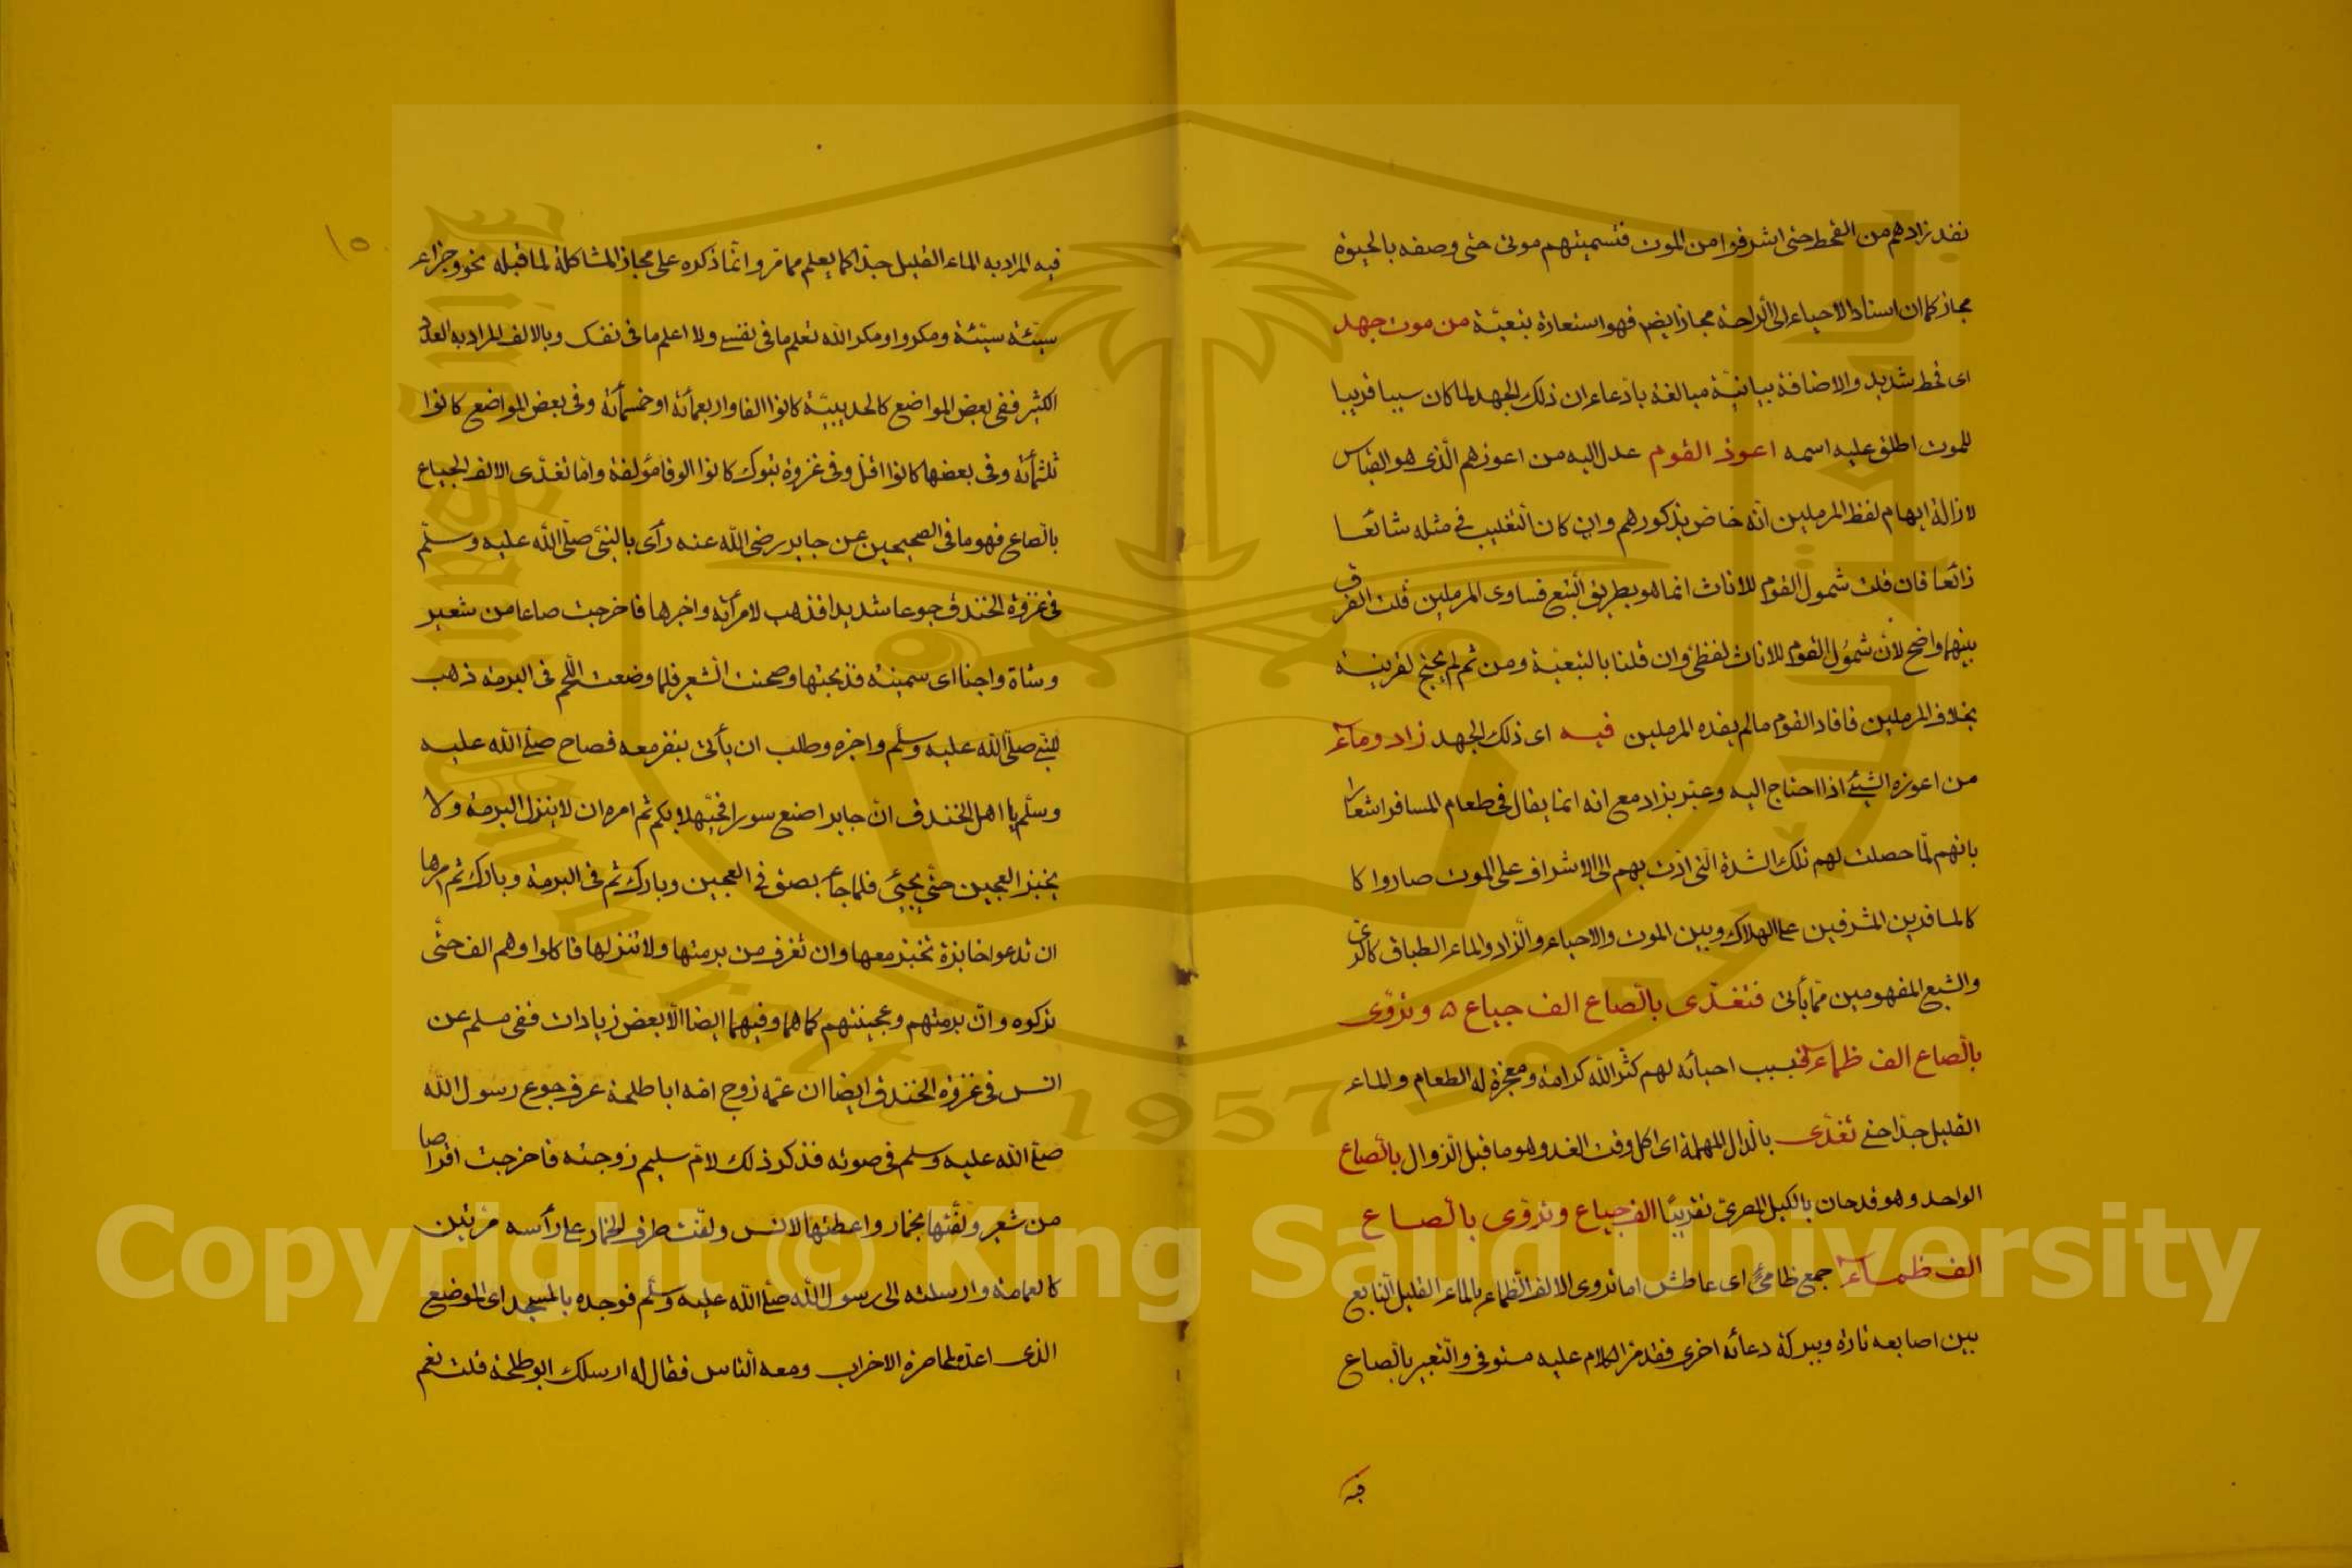 نفد زادهم من القحط حتى اشرفوا من الموت فتسميتهم موتى حتى وصفه بالحيوة
مجاز كما ان اسناد الاحياء الى الراحة مجاز ايض فهو استعارة تبعيّة من موت جهد
اى قحط شديد والاضافة بيانيّة مبالغة بادّعاء ان ذلك الجهد لما كان سببا قريبا
للموت اطلق عليه اسمه اعوز القوم عدل اليه من اعوزهم الّذى هو القياس
لازالة ايهام لفظ المرملين انّه خاص بذكورهم وان كان التغليب فى مثله شائعا
ذائعا فان قلت شمول القوم للاناث انما هو بطريق التبع فساوى المرملين قلت الفرق
بينهما واضح لان شمول القوم للاناث لفظى وان قلنا بالتبعيّة ومن ثم لم يحتج لقرينة
بخلاف المرملين فافاد القوم مالم يفده المرملين فيه اى ذلك الجهد زاد وماء
من اعوزه الشئ اذا احتاج اليه وعبّر بزاد مع انه انما يقال فى طعام المسافر اشعارا
بانهم لمّا حصلت لهم تلك الشدة التى ادّت بهم الى الاشراف على الموت صاروا كا
كالمسافرين المشرفين على الهلاك وبين الموت والاحياء والزاد والماء الطباق كالرى
والشبع المفهومين ممّا يأتى فتغدّى بالصاع الف جياع ٥ وتروّى
بالصاع الف ظماء فبسبب احيائه لهم كثّر الله كرامة ومعجزة له الطعام والماء
القليل جدا حتى تغدّى بالدال المهملة اى اكل وقت الغد وهو ما قبل الزوال بالصاع
الواحد وهو قدحان بالكيل المصرى تقريبًا الف جياع وتروّى بالصاع
الف ظماء جمع ظامئ اى عاطش اما تروى الالف الظماء بالماء القليل النابع
بين اصابعه تارة وببركة دعائه اخرى فقد مرّ الكلام عليه مستوفى والتعبير بالصاع
فيه
١٥
فيه المراد به الماء القليل جدّا كما يعلم ممّا مرّ وانّما ذكره على مجاز المشاكلة لما قبله نحو وجزاء
سيّئة سيّئة ومكروا ومكر الله تعلم ما فى نفسى ولا اعلم ما فى نفسك وبالالف المراد به العدد
الكثير ففى بعض المواضع كالحديبيّة كانوا الفا واربعمأئة او خمسمأئة وفى بعض المواضع كانوا
ثلثمأئة وفى بعضها كانوا اقل وفى غزوة تبوك كانوا الوفا مؤلفة وامّا تغدّى الالف الجياع
بالصاع فهو ما فى الصحيحين عن جابر رضى الله عنه رأى بالنبىّ صلّى الله عليه وسلّم
فى غزوة الخندق جوعا شديدا فذهب لامرأته واخبرها فاخرجت صاعا من شعير
وشاة واجنا اى سمينة فذبحتها وصحنت الشعير فلما وضعت اللحم فى البرمة ذهب
للنبى صلّى الله عليه وسلّم واخبره وطلب ان يأتى بنفر معه فصاح صلى الله عليه
وسلّم يا اهل الخندق انّ جابرا صنع سورا فحيّهلا بكم ثم امره ان لا ينزل البرمة ولا
يخبز العجين حتّى يجيئ فلما جاء بصق فى العجين وبارك ثم فى البرمة وبارك ثم امرها
ان تدعوا خابزة تخبز معها وان تغرف من برمتها ولا تنزلها فاكلوا وهم الف حتّى
تركوه وانّ برمتهم وعجينتهم كما هما وفيهما ايضا الّا بعض زيادات ففى مسلم عن
انس فى غزوة الخندق ايضا ان عمّه زوج امّه ابا طلحة عرف جوع رسول الله
صلى الله عليه وسلم فى صوته فذكر ذلك لامّ سليم زوجته فاخرجت اقراصا
من شعير ولفّتها بخمار واعطتها لانس ولفّت طرف الخمار على رأسه مرّتين
كالعمامة وارسلته الى رسول الله صلى الله عليه وسلّم فوجده بالمسجد اى الموضع
الذى اعدّه لمحاصرة الاحزاب ومعه الناس فقال له ارسلك ابو طلحة قلت نعم
Copyright © King Saud University
1957